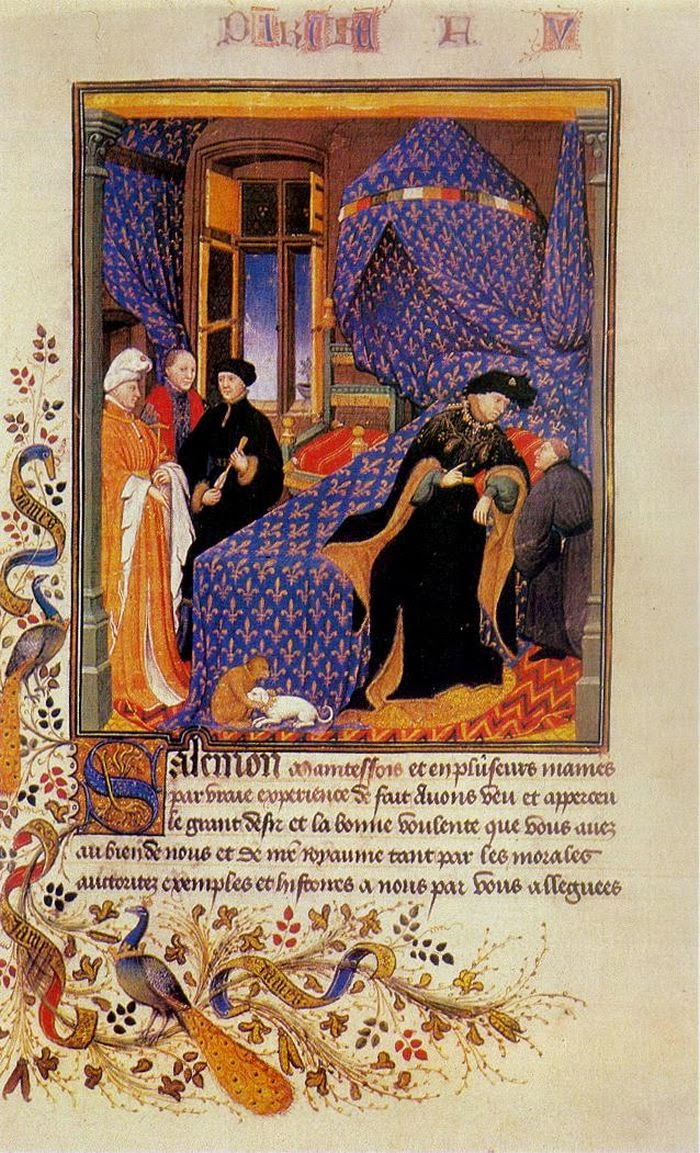 Salemon Maintesfois et en plusieurs manies
par vraie experience de fait avons veu et apperceu
le grant desir et la bonne voulente que vous avez
au bien de nous et de nre royaume tant par les morales
auctoritez exemples et histoires a nous par vous alleguees